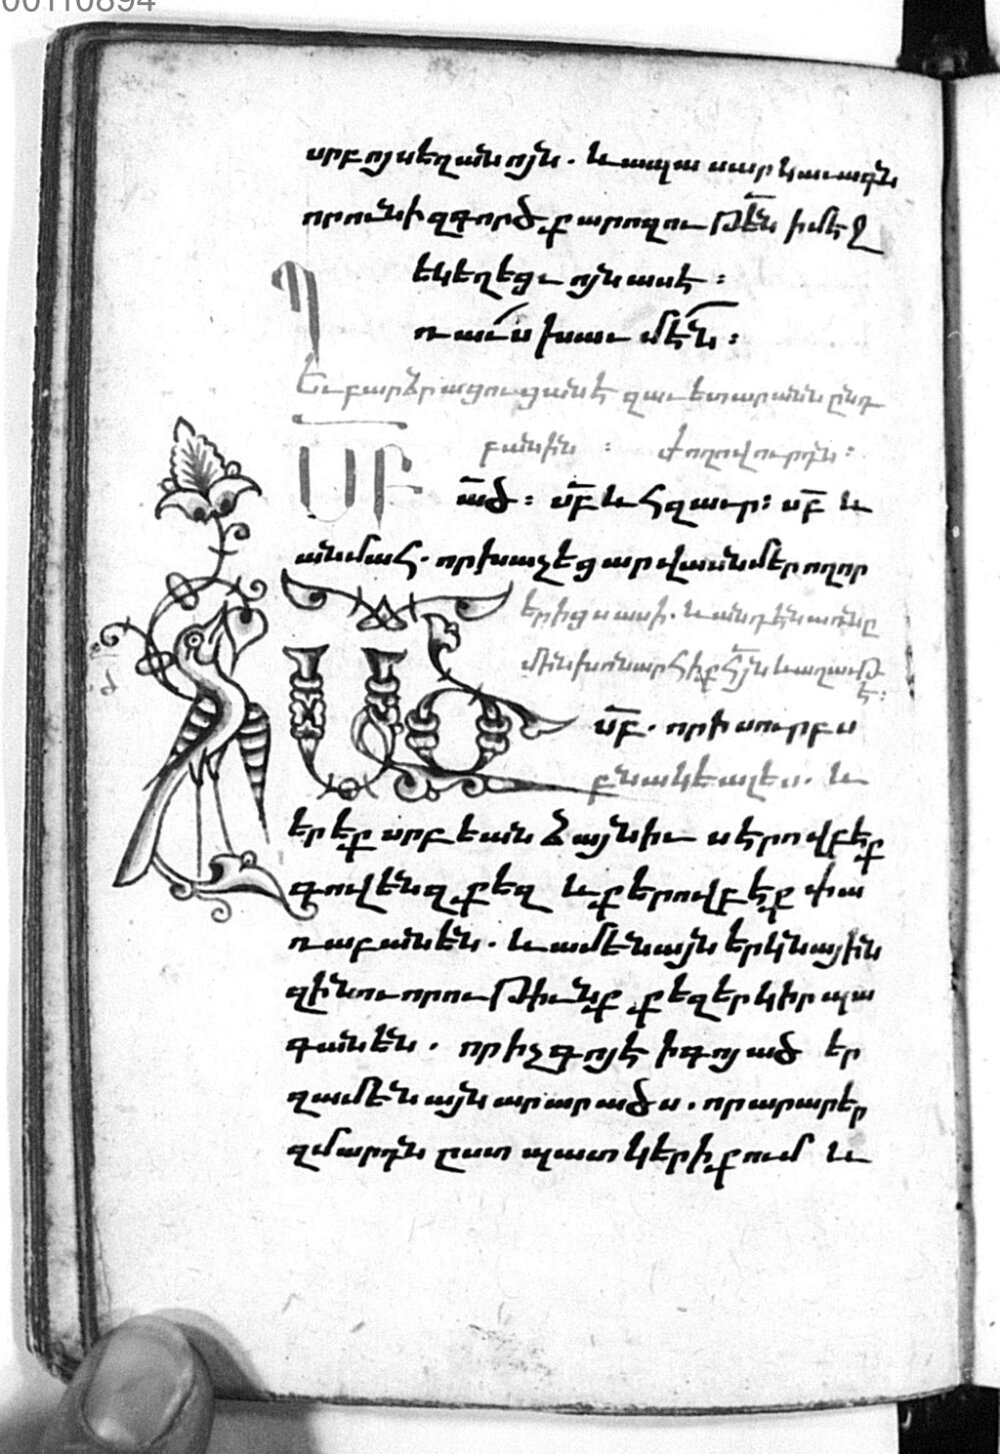 00110894
սրբոյ սեղանոյն. և ապա սարկաւագն
որ ունի զգործ քարոզութե̅ն ի մէջ
եկեղեցւոյն ասէ :
Պռաւսխաւմէն :
Եւ բարձրացուցանէ զաւետարանն ընդ
բանին : ժողովուրդն :
ՍԲ̅ ա̅ծ : սբ̅ և հզաւր : սբ̅ և
անմահ. որ խաչեցար վասն մեր ողոր
երիցս ասի. և անդէն առնը
մին խոնարհիք հ̅յն և աղաւթ
է :
ԱԾ սբ̅. որ ի սուրբս
բնակեալ ես. և
երեք սրբեան ձայնիւ սերովբէք
գովեն զքեզ և քերովբէք փա
ռաբանեն. և ամենայն երկնային
զինուորութիւնք քեզ երկիր պա
գանեն. որ ի չգոյէ ի գոյ ած եր
զամենայն արարածս. որ արարեր
զմարդն ըստ պատկերի քում և